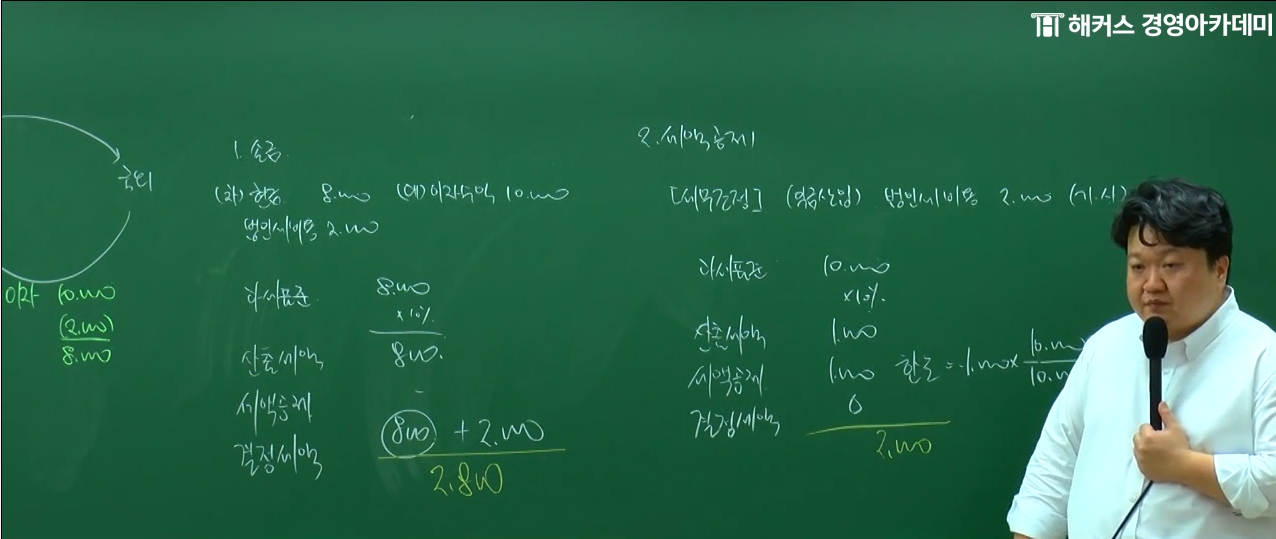 해커스 경영아카데미
국외
이자 10.000
(2.000)
8.000
1. 손금
(차) 현금 8.000 (대) 이자수익 10.000
법인세비용 2.000
과세표준 8.000
×10%
산출세액 800.
세액공제 -
결정세액 800 + 2.000
2.800
2. 세액공제
[세무조정] (익금산입) 법인세비용 2.000 (기.사)
과세표준 10.000
×10%
산출세액 1.000
세액공제 1.000 한도 = 1.000 × 10.000
결정세액 0
2.000